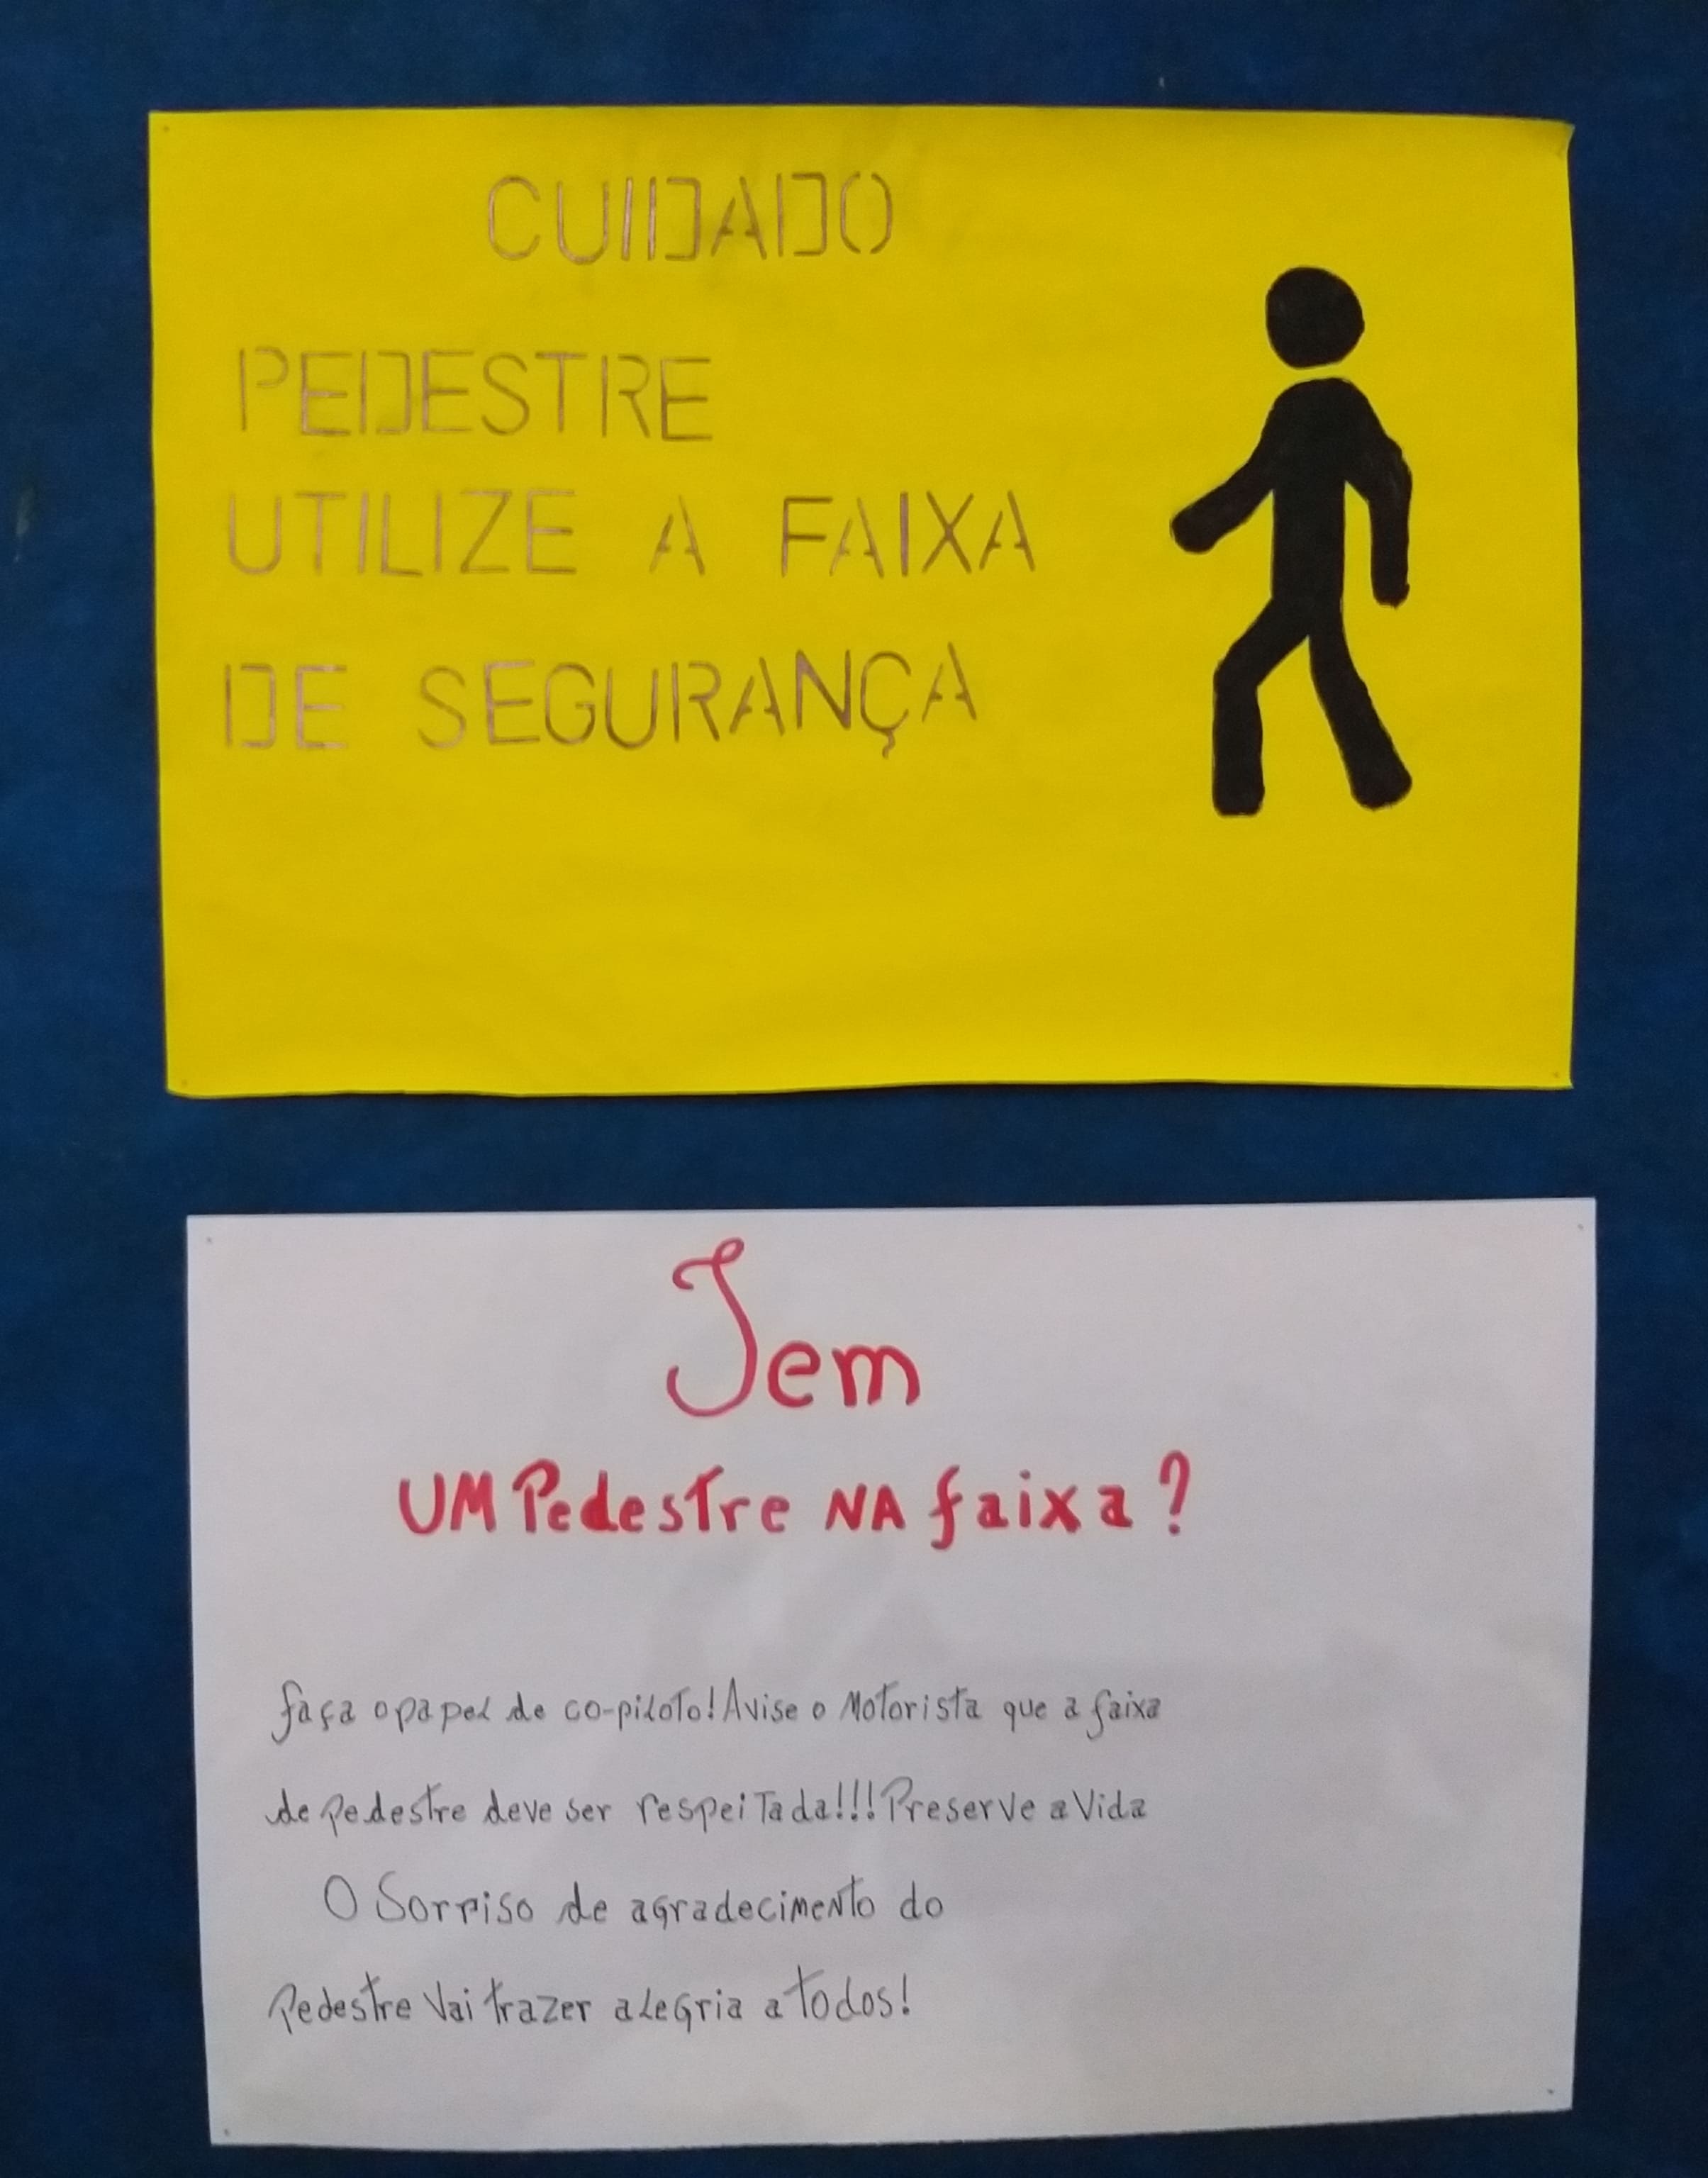 CUIDADO
PEDESTRE
UTILIZE A FAIXA
DE SEGURANÇA
Tem
UM Pedestre NA faixa?
faça o papel de co-piloto! Avise o Motorista que a faixa
de pedestre deve ser respeitada!!! Preserve a Vida
O Sorriso de agradecimento do
Pedestre Vai trazer alegria a todos!